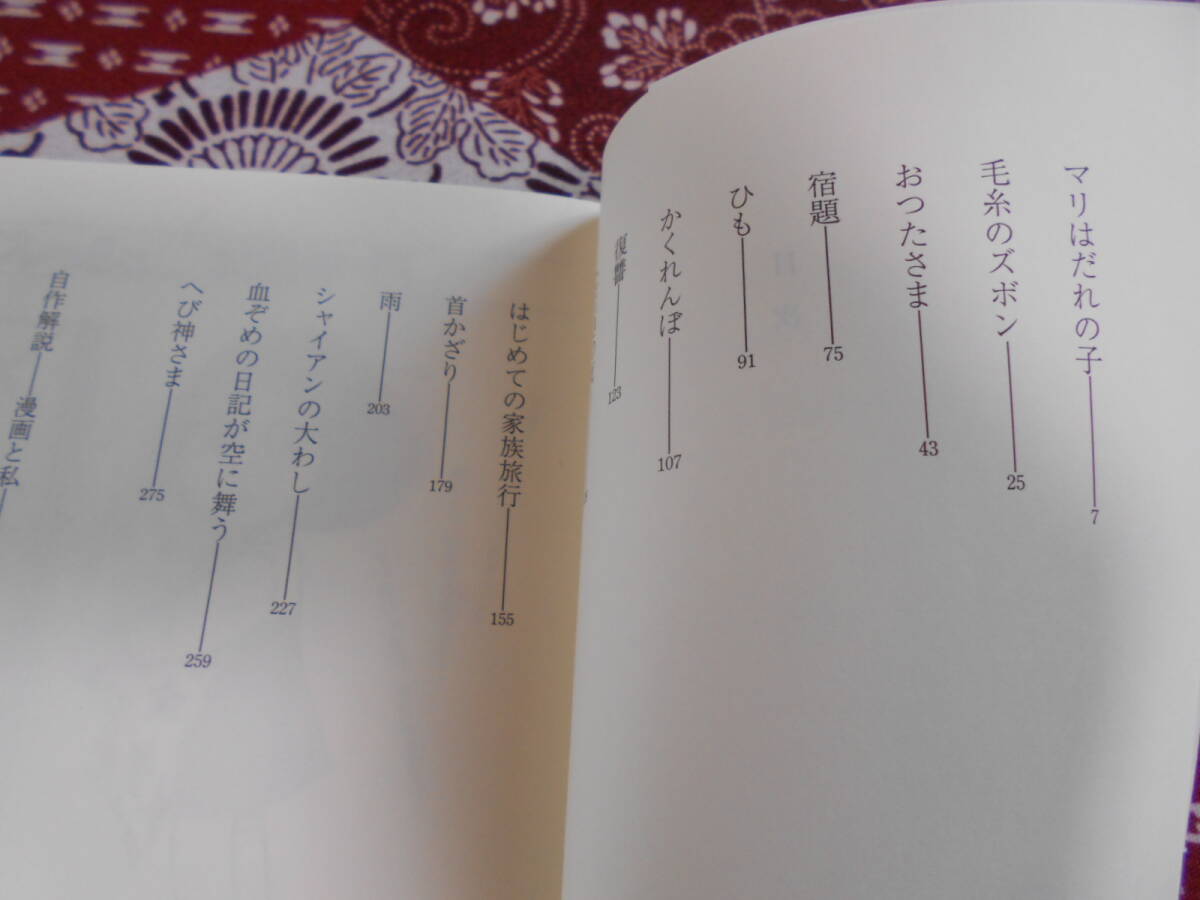 マリはだれの子 7
毛糸のズボン 25
おつたさま 43
宿題 75
ひも 91
かくれんぼ 107
復讐 123
はじめての家族旅行 155
首かざり 179
雨 203
シャイアンの大わし 227
血ぞめの日記が空に舞う 259
へび神さま 275
自作解説 漫画と私